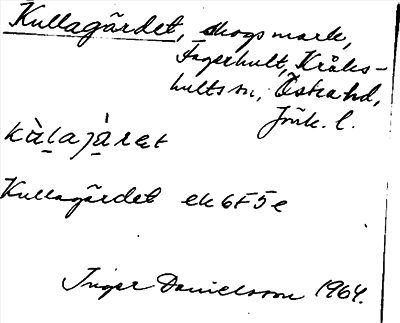 Kullagärdet, skogsmark,
Fagerhult, Kråks-
hults sn, Östra hd,
Jönk. l.
kàḷajà̤ret
Kullagärdet ek 6F5e
Inger Danielsson 1964.